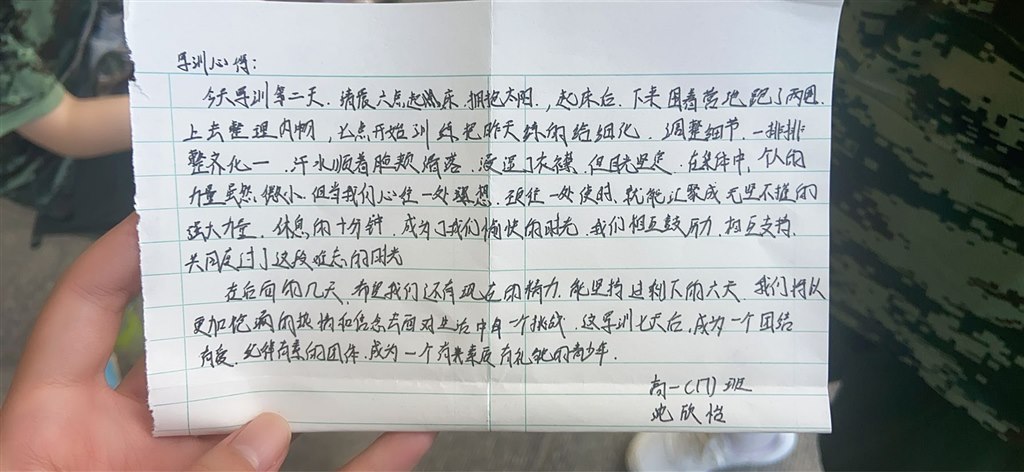 军训心得:
今天军训第二天.清晨六点起床.拥抱太阳.,起床后.下来围着营地跑了两圈.
上去整理内物,七点开始训练把昨天练的给细化.调整细节.一排排
整齐化一.汗水顺着脸颊滑落.浸湿了衣襟.但目光坚定.在集体中,个人的
力量虽然微小.但当我们心往一处想.劲往一处使时,就能汇聚成无坚不摧的
强大力量.休息的十分钟.成为了我们愉快的时光.我们相互鼓励.相互支持.
共同度过了这段难忘的时光
在后面的几天.希望我们还有现在的精力.能坚持过剩下的六天.我们将以
更加饱满的热情和信念去面对生活中每一个挑战.这军训七天后,成为一个团结
有爱.的团体.成为一个有礼貌的青少年.
高一(17)班
欣怡